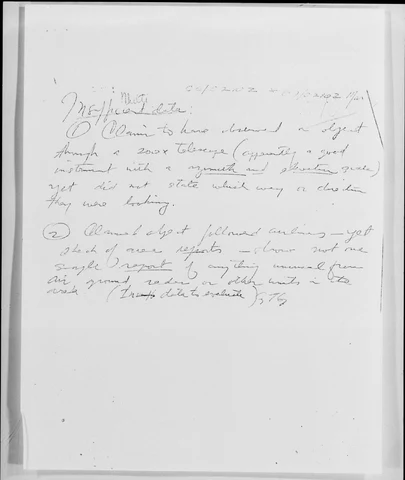 Insufficient data:
① Claim to have observed an object
through a 200x Telescope (apparently a good
instrument with a azimuth and elevation
yet did not state which way or direction
they were looking.
② Claimed object followed airlines - yet
check of area reports - show not one
single report of anything unusual from
air ground radar or other units in the
area ( data to evaluate)